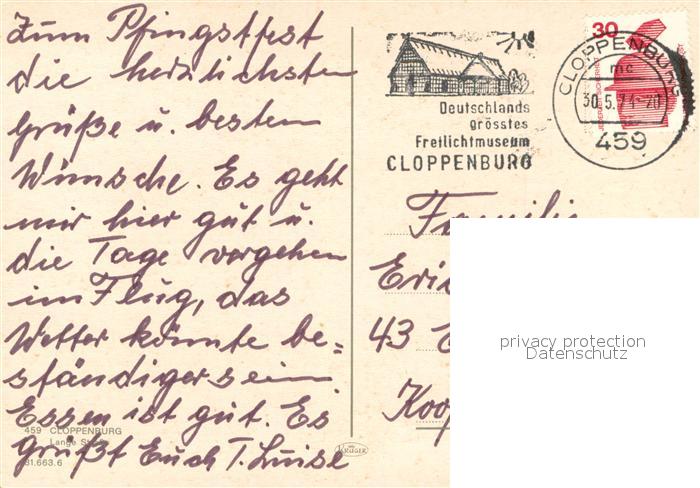 Zum Pfingstfest
die herzlichsten
Grüße u. besten
Wünsche. Es geht
mir hier gut u.
die Tage vergehen
im Flug, das
Wetter könnte be=
ständiger sein
Essen ist gut. Es
grüßt Euch T. Luise
459 CLOPPENBURG
Lange
31.663.6
KRÜGER
Deutschlands
grösstes
Freilichtmuseum
CLOPPENBURG
30
CLOPPENBURG
mc
30.5.74-20
459
Familie
Eri
43 E
Koop
privacy protection
Datenschutz